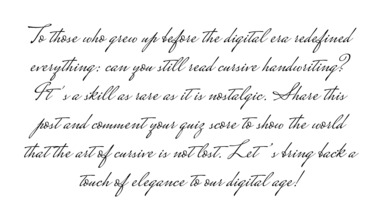 To those who grew up before the digital era redefined
everything: can you still read cursive handwriting?
It's a skill as rare as it is nostalgic. Share this
post and comment your quiz score to show the world
that the art of cursive is not lost. Let's bring back a
touch of elegance to our digital age!